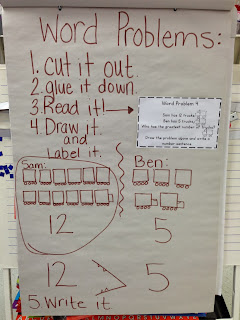 Word Problems:
1. cut it out.
2. glue it down.
3. Read it!
4. Draw it
and
Label it.
Word Problem
has 12 trucks.
Ben has 5 trucks.
Who has the greatest number of trucks?
Draw the problem above and write a
number sentence.
Sam:
12
Ben:
5
12 > 5
5 Write it